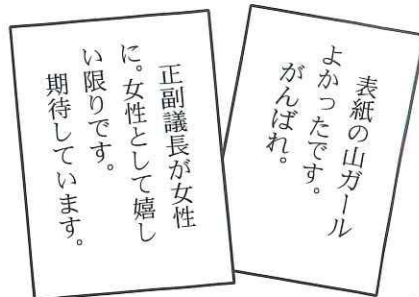 表紙の山ガール
よかったです。
がんばれ。
正副議長が女性
に。女性として嬉し
い限りです。
期待しています。